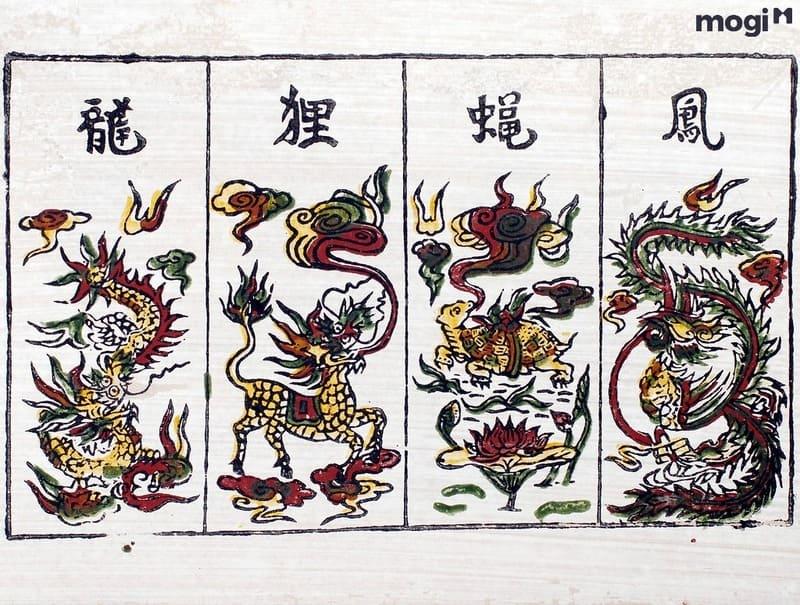 mogi M
龍 狸 蝿 鳳